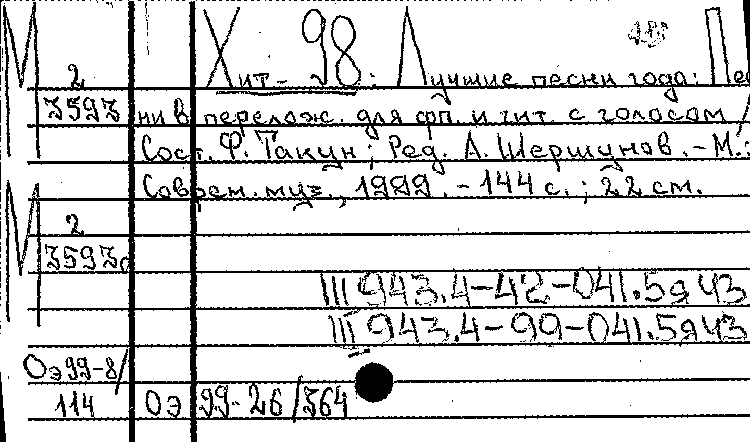 М Хит-98: Лучшие песни года: Пес
2
3593 ни в перелож. для фп. и гит. с голосом /
Сост. Ф. Такун; Ред. А. Шершунов. - М.:
Соврем. муз., 1999. - 144 с.; 22 см.
М 2
3593а
Щ943.4-42-041.5я43
Щ943.4-99-041.5я43
Оэ99-8/
114 Оэ 99-26/364